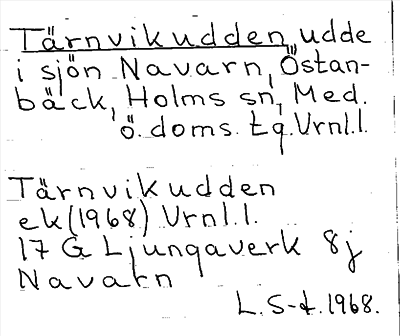 Tärnvikudden, udde
i sjön Navarn, Östan-
bäck, Holms sn, Med.
ö. doms. tg. Vrnl.l.
Tärnvikudden
ek(1968) Vrnl.l.
17 G Ljungaverk 8j
Navarn
L.S-t.1968.